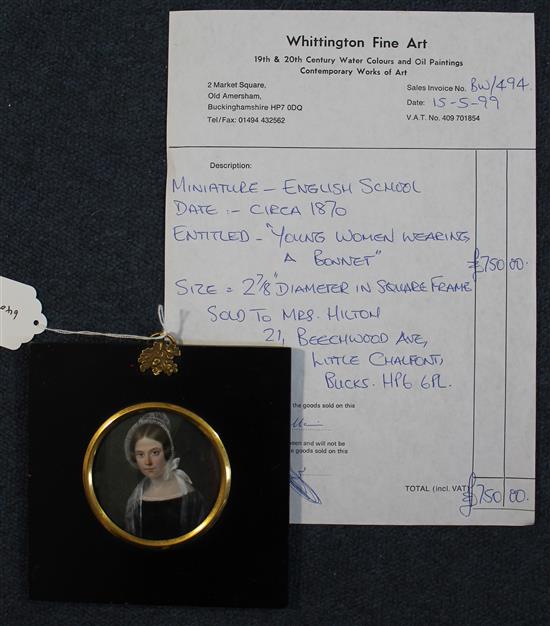 Whittington Fine Art
19th & 20th Century Water Colours and Oil Paintings
Contemporary Works of Art
2 Market Square,
Old Amersham,
Buckinghamshire HP7 0DQ
Tel/Fax: 01494 432562
Sales Invoice No. BW/494.
Date: 15-5-99
V.A.T. No. 409 701854
Description:
MINIATURE - ENGLISH SCHOOL
DATE :- CIRCA 1870
ENTITLED - "YOUNG WOMEN WEARING
A BONNET"
£750 00.
SIZE = 2 7/8" DIAMETER IN SQUARE FRAME
SOLD TO MRS. HILTON
21, BEECHWOOD AVE,
LITTLE CHALFONT,
BUCKS. HP6 6PL.
the goods sold on this
een and will not be
e goods sold on this
TOTAL (incl. VAT) £750 00.